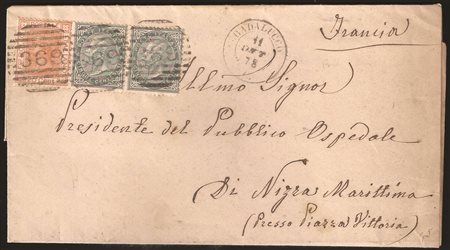 Francia
11
78
369
Illmo Signor
Presidente del Pubblico Ospedale
Di Nizza Marittima
(Presso Piazza Vittoria)